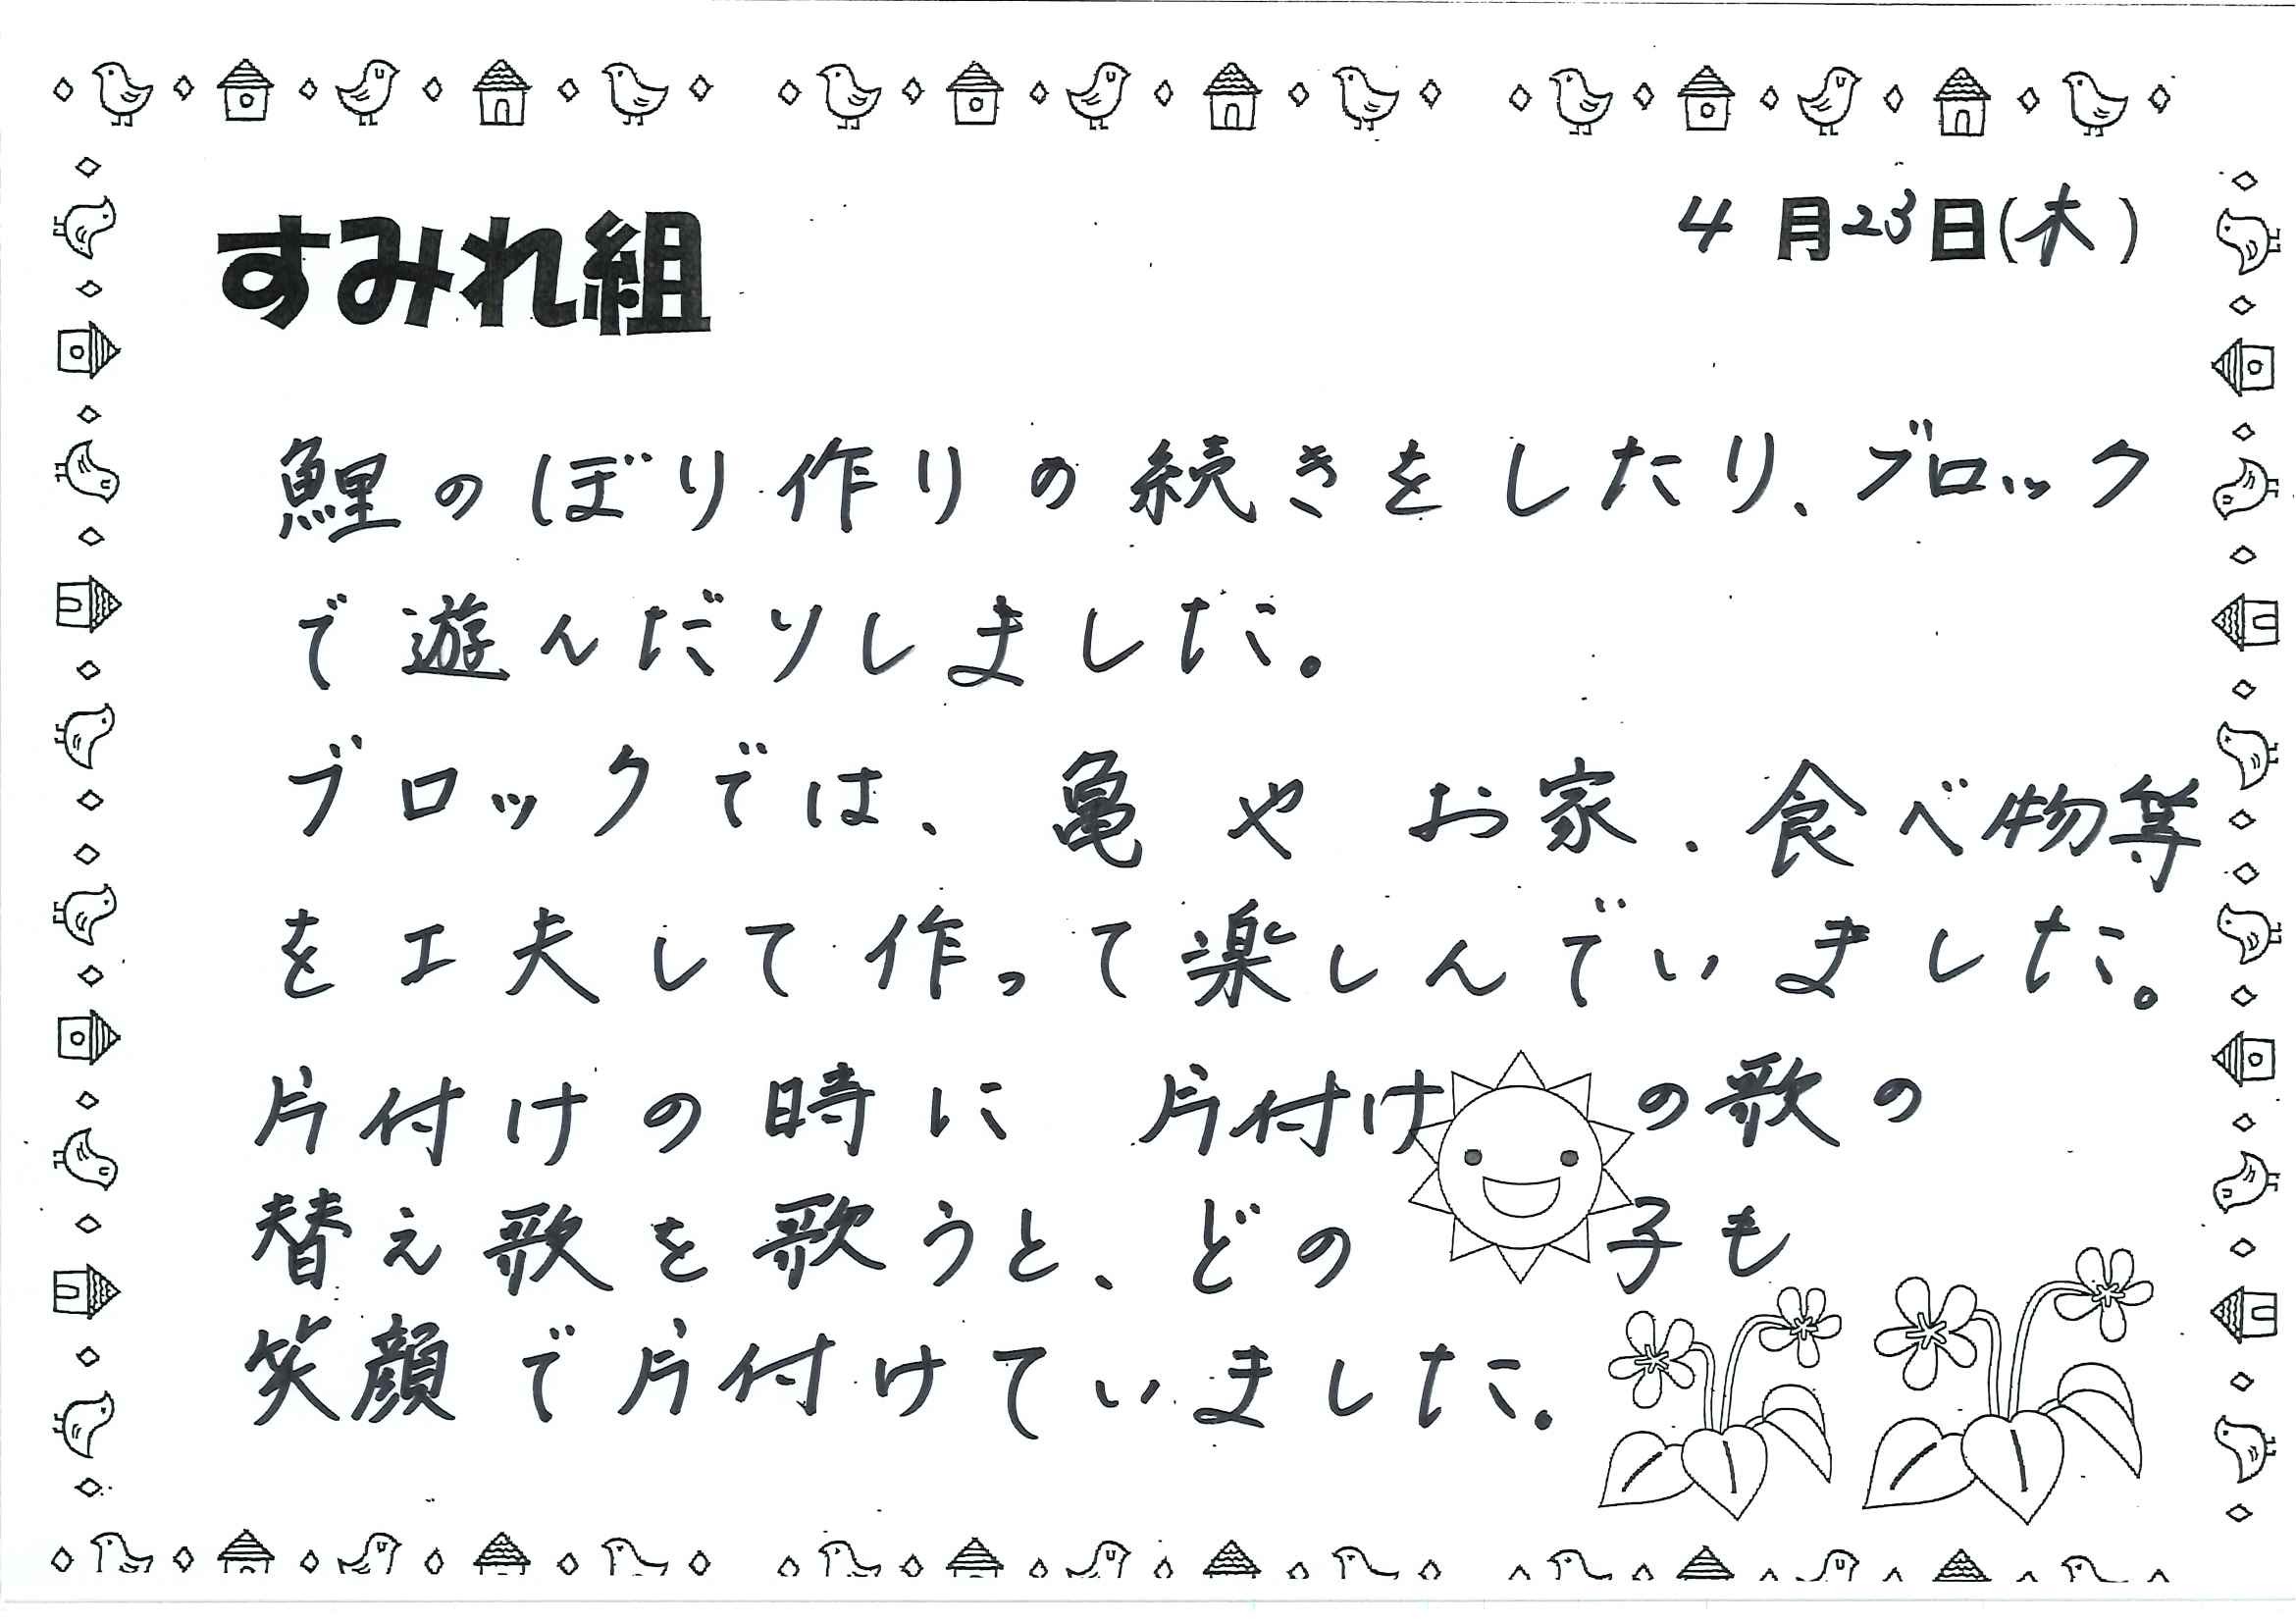 すみれ組
4月23日(木)
鯉のぼり作りの続きをしたり、ブロック
で遊んだりしました。
ブロックでは、亀やお家、食べ物等
を工夫して作って楽しんでいました。
片付けの時に片付けの歌の
替え歌を歌うと、どの子も
笑顔で片付けていました。